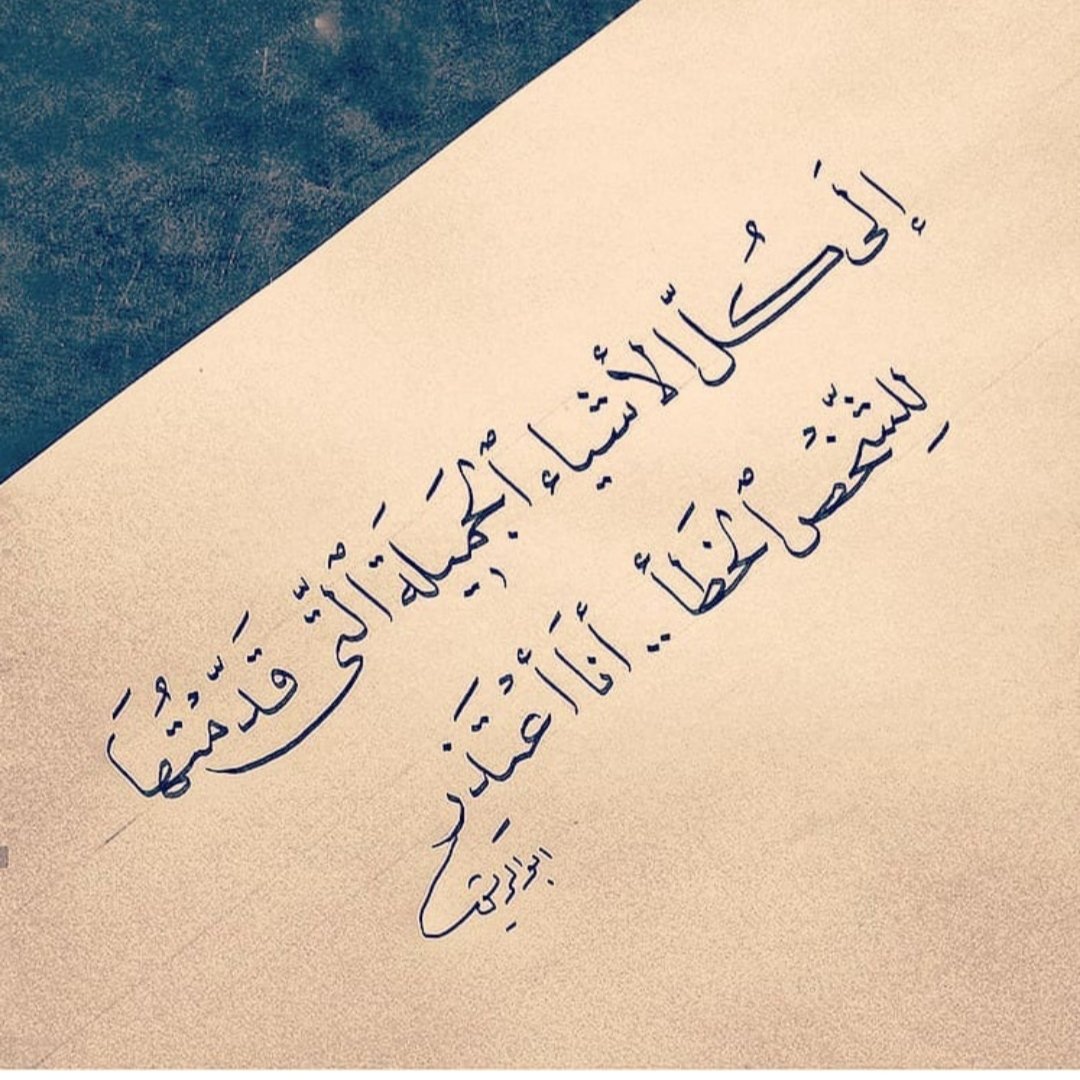 إلَى كُلّ الأشياء ٱلجَميلَة ٱلتّي قَدّمْتُهَا
لِلشّخْص ٱلخَطأ.. أنَا أعْتَذر